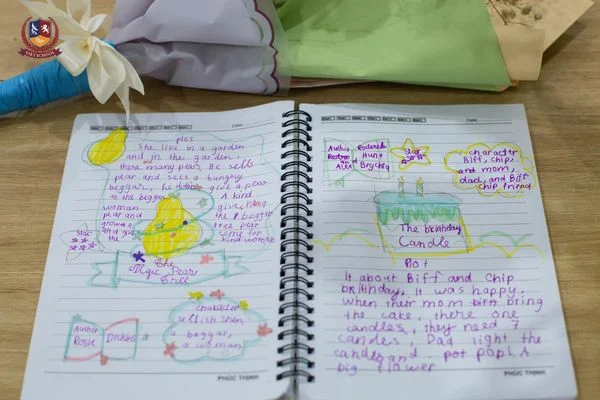 VIETSCHOOL
Date:
plot
She live in a garden
and in the garden
there many pear, He sells
pear and sees a hungry
beggar, he didn't give a pear
to the beggar. A kind
woman give him
pear and the beggar
ground a tree pear
and give come for
the kind woman
Star
The
Magic Pear
Tree
Author
Rosie Dickins
character
sellish shen,
a beggar,
a woman
PHÚC THỊNH
Date:
Author Roderick
Hunt
Alex Brychta
Star
character
Biff, Chip
and mom,
dad, and Biff
chip friend
The birthday
Candle
Plot
It about Biff and Chip
birthday. It was happy.
When their mom bring
the cake, there one
candles, they need 7
candles, Dad light the
candle and pot pop! A
big flower
PHÚC THỊNH